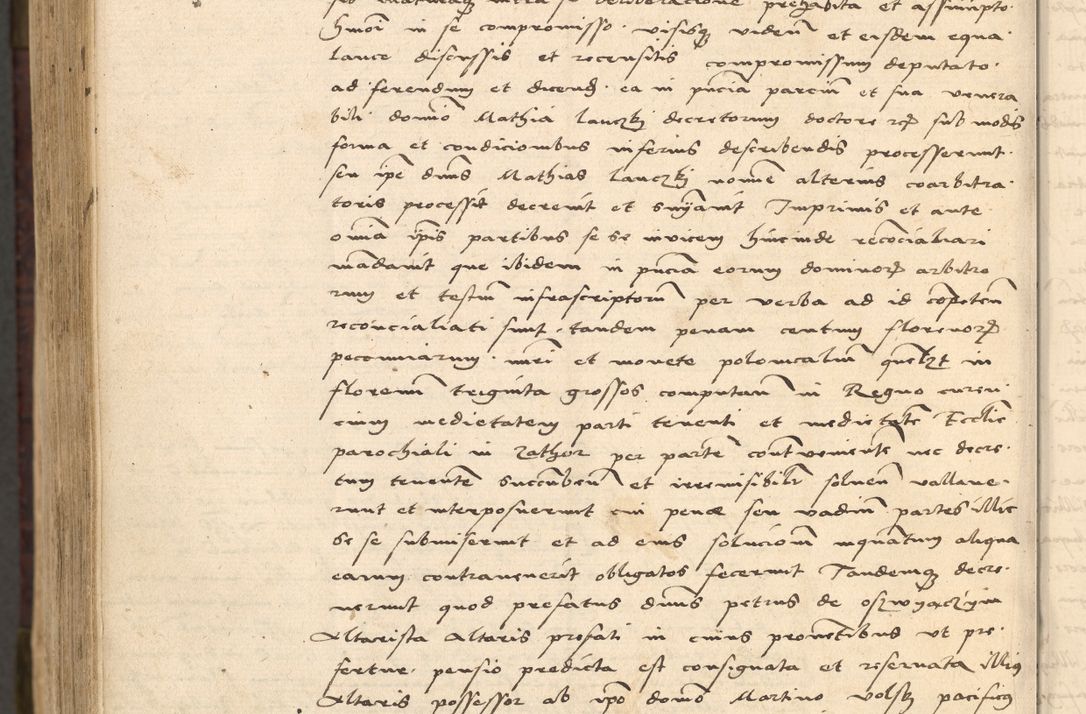 seu maturaque intra se deliberacione prehabita et assumpto
hmoi in se compromisso visisque videm et eisdem equa
lance discussis et recensitis compromissum deputato
ad ferendum et dicend ea in pncia parcium et sua venera
bili domo Mathia lanczkj decretorum doctore sub modis
forma et condicionibus inferius describendis processerunt
seu ipe dnus Mathias lanczkj nomine alterius coarbitra
toris processit decrevit et Imprimis et ante
omia ipis partibus se se invicem hincinde reconcialiari
madavit que ibidem in pncia eorum dominor arbitro
rum et testium infrascriptorum per verba ad id competen
reconcialiati sunt tandem penam centum florenor
pecuniarum mri et monete polonicalium quelzt in
florenum triginta grossos computan in Regno curen
cium medietatem parti tenenti et medietatem Ecclie
parochiali in Zathor per partem contravenientem nec decre
tum tenentem succumben et irremisibiliter solven vallave
runt et interposuerunt cui pene seu vadium partes illic
se se submiserunt et ad eius solucionem inquantum aliqua
earum contravenerit obligatos fecerunt Tandemque decre
verunt quod prefatus dnus petrus de oszwyaczym
Altarista Altaris prefati in cuius proventibus ut pre
fertur pensio predicta est consignata et reservata illius
Altaris possessor ab ipo domo Martino volski pacificus